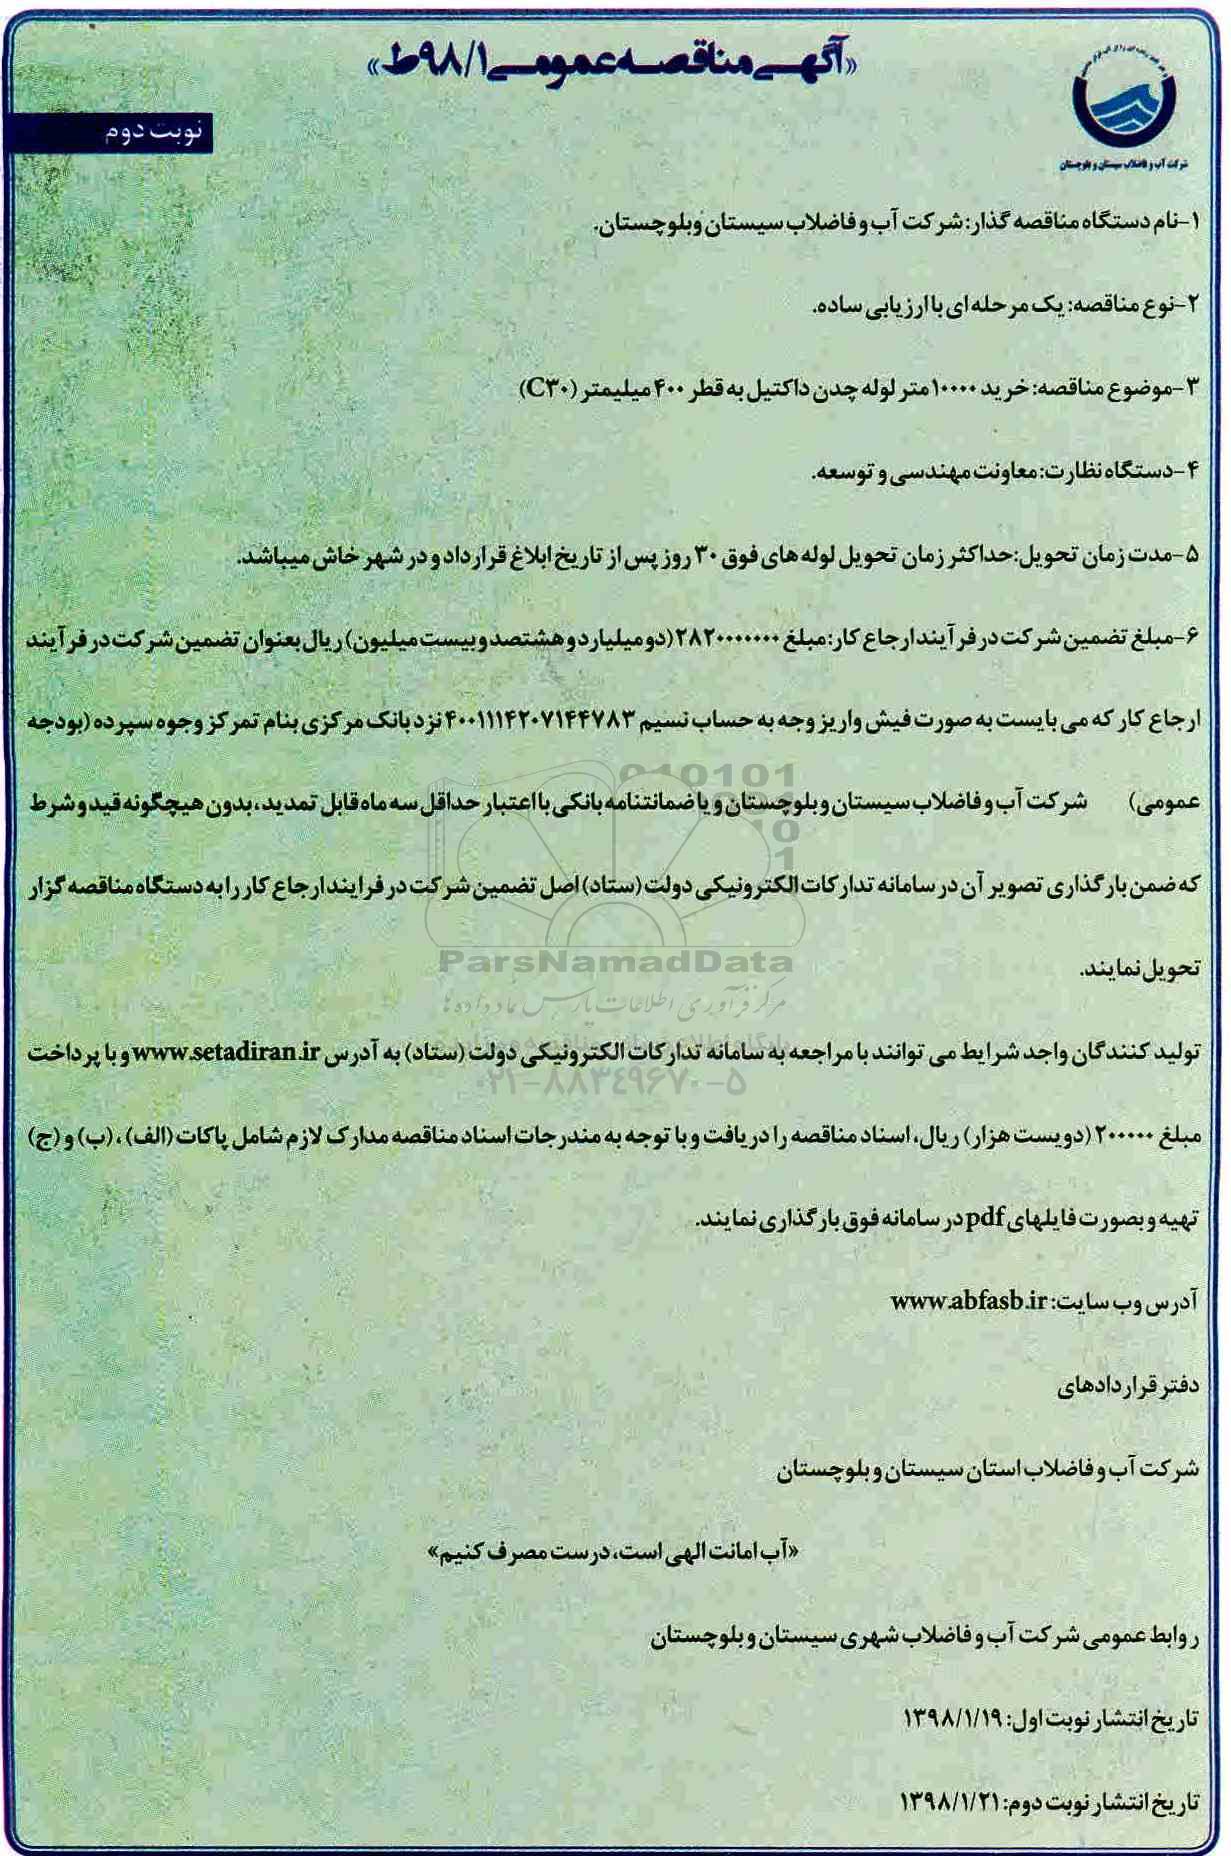 «آگهی مناقصه عمومی ۹۸/۱ط»
نوبت دوم
شرکت آب و فاضلاب سیستان و بلوچستان
۱-نام دستگاه مناقصه گذار: شرکت آب و فاضلاب سیستان وبلوچستان.
۲-نوع مناقصه: یک مرحله ای با ارزیابی ساده.
۳-موضوع مناقصه: خرید ۱۰۰۰۰ متر لوله چدن داکتیل به قطر ۴۰۰ میلیمتر (C۳۰)
۴-دستگاه نظارت: معاونت مهندسی و توسعه.
۵-مدت زمان تحویل: حداکثر زمان تحویل لوله های فوق ۳۰ روز پس از تاریخ ابلاغ قرارداد و در شهر خاش میباشد.
۶-مبلغ تضمین شرکت در فرآیند ارجاع کار: مبلغ ۲۸۲۰۰۰۰۰۰۰ (دو میلیارد و هشتصد و بیست میلیون) ریال بعنوان تضمین شرکت در فرآیند
ارجاع کار که می بایست به صورت فیش واریز وجه به حساب نسیم ۴۰۰۱۱۱۴۲۰۷۱۴۴۷۸۳ نزد بانک مرکزی بنام تمرکز وجوه سپرده (بودجه
عمومی) شرکت آب و فاضلاب سیستان و بلوچستان و یا ضمانتنامه بانکی با اعتبار حداقل سه ماه قابل تمدید، بدون هیچگونه قید و شرط
که ضمن بارگذاری تصویر آن در سامانه تدارکات الکترونیکی دولت (ستاد) اصل تضمین شرکت در فرایند ارجاع کار را به دستگاه مناقصه گزار
ParsNamadData
تحویل نمایند.
مرکز فرآوری اطلاعات پارس نماد داده ها
تولید کنندگان واجد شرایط می توانند با مراجعه به سامانه تدارکات الکترونیکی دولت (ستاد) به آدرس www.setadiran.ir و با پرداخت
۰۲۱-۸۸۳۴۹۶۷۰-۵
مبلغ ۲۰۰۰۰۰ (دویست هزار) ریال، اسناد مناقصه را دریافت و با توجه به مندرجات اسناد مناقصه مدارک لازم شامل پاکات (الف)، (ب) و (ج)
تهیه و بصورت فایلهای pdf در سامانه فوق بارگذاری نمایند.
آدرس وب سایت: www.abfasb.ir
دفتر قراردادهای
شرکت آب و فاضلاب استان سیستان و بلوچستان
«آب امانت الهی است، درست مصرف کنیم»
روابط عمومی شرکت آب و فاضلاب شهری سیستان و بلوچستان
تاریخ انتشار نوبت اول: ۱۳۹۸/۱/۱۹
تاریخ انتشار نوبت دوم: ۱۳۹۸/۱/۲۱